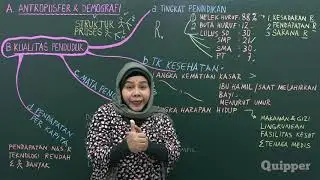 A. ANTROPOSFER & DEMOGRAFI
STRUKTUR
PROSES
B. KUALITAS PENDUDUK
TINGKAT PENDIDIKAN
MELEK HURUF : 88%
BUTA HURUF : 12%
LULUS SD : 30
SMP : 21
SMA : 30
PT : 7
KESADARAN R
PENDAPATAN R
SARANA R
b. TK KESEHATAN
ANGKA KEMATIAN KASAR
IBU HAMIL / SAAT MELAHIRKAN
BAYI
MENURUT UMUR
ANGKA HARAPAN HIDUP
MAKANAN & GIZI
LINGKUNGAN
FASILITAS KESEHAT
Σ TENAGA MEDIS
C. MATA PEN
d. PENDAPATAN
PER KAPITA
PENDAPATAN NAS. R
TEKNOLOGI RENDAH
BANYAK
Quipper